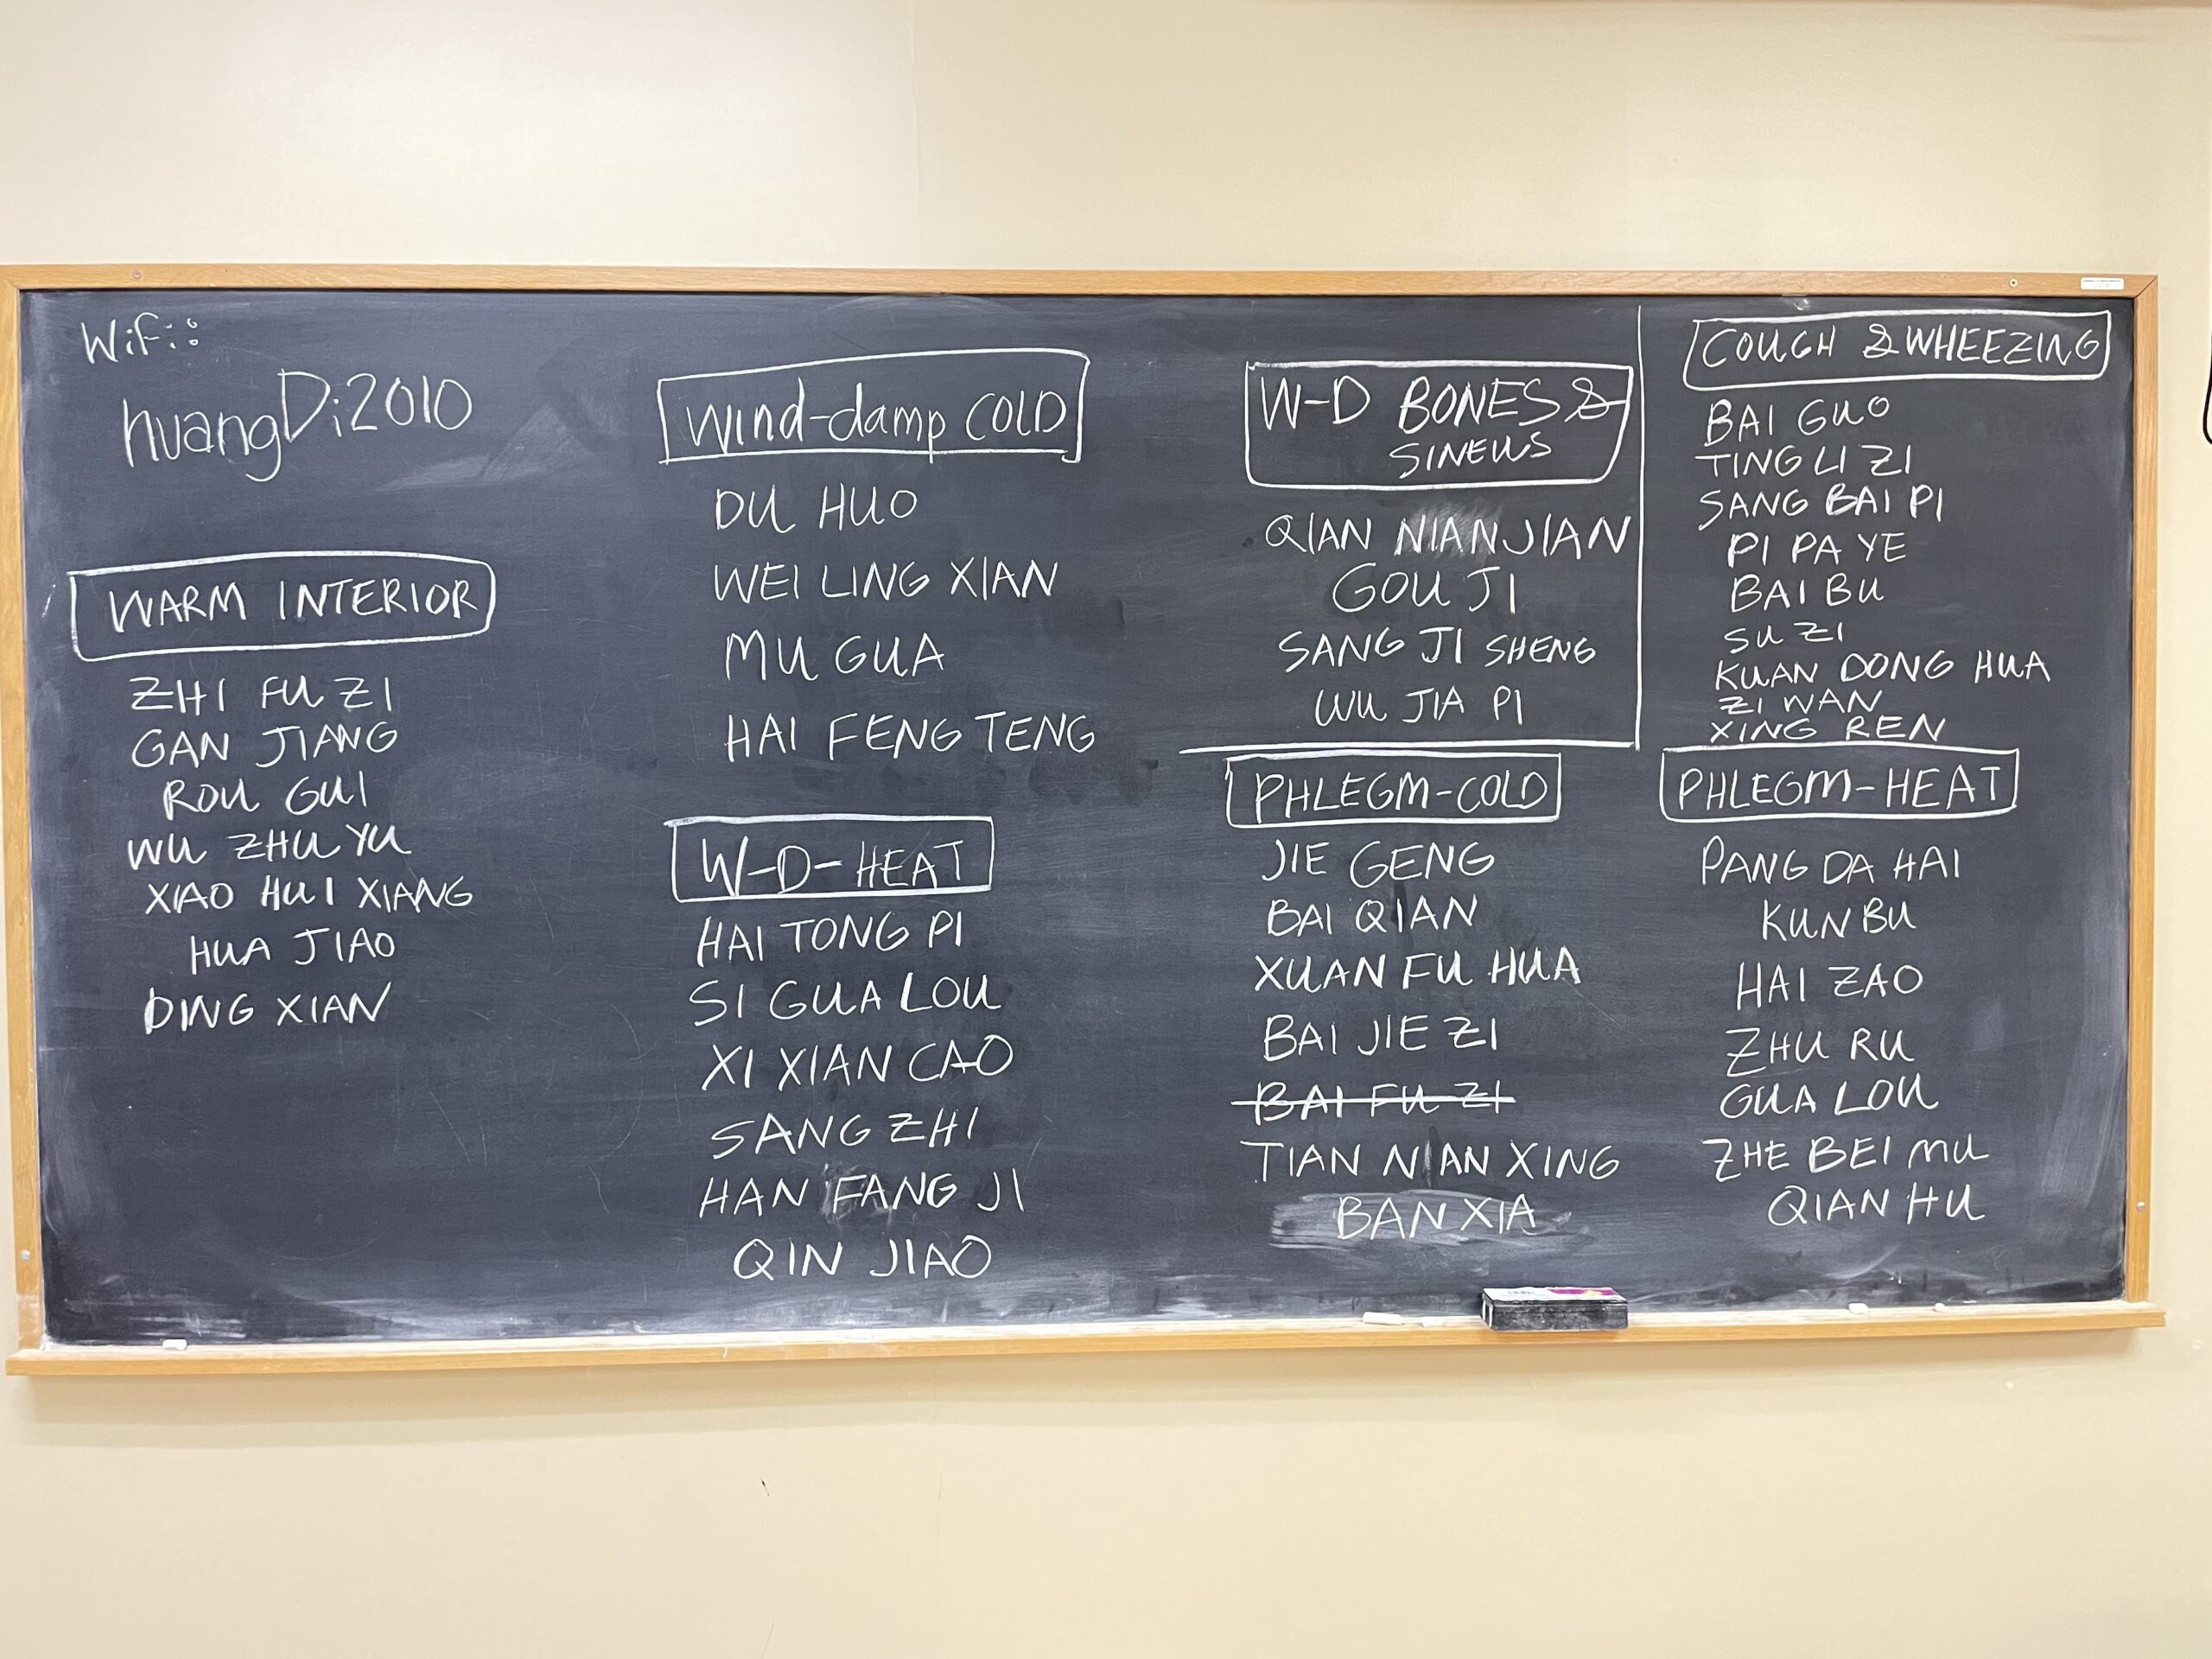 WiFi:
huangDi2010
WARM INTERIOR
ZHI FU ZI
GAN JIANG
ROU GUI
WU ZHU YU
XIAO HUI XIANG
HUA JIAO
DING XIAN
Wind-damp COLD
DU HUO
WEI LING XIAN
MU GUA
HAI FENG TENG
W-D-HEAT
HAI TONG PI
SI GUA LOU
XI XIAN CAO
SANG ZHI
HAN FANG JI
QIN JIAO
W-D BONES &
SINEWS
QIAN NIAN JIAN
GOU JI
SANG JI SHENG
WU JIA PI
PHLEGM-COLD
JIE GENG
BAI QIAN
XUAN FU HUA
BAI JIE ZI
BAI FU ZI
TIAN NIAN XING
BAN XIA
COUGH & WHEEZING
BAI GUO
TING LI ZI
SANG BAI PI
PI PA YE
BAI BU
SU ZI
KUAN DONG HUA
ZI WAN
XING REN
PHLEGM-HEAT
PANG DA HAI
KUN BU
HAI ZAO
ZHU RU
GUA LOU
ZHE BEI MU
QIAN HU